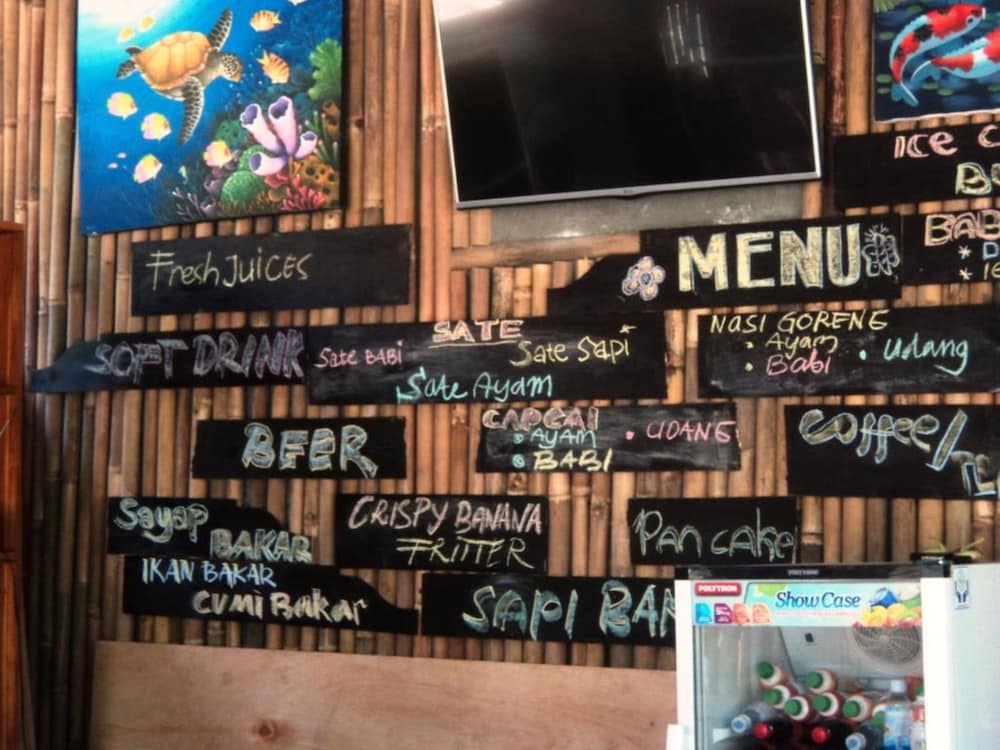 ICE C
Fresh JUICES
MENU
SOFT DRINK
SATE
Sate BABi
Sate Sapi
Sate Ayam
NASI GORENG
Ayam
Babi
Udang
BEER
CAPCAI
AYAM
UDANG
BABI
Coffee/
Sayap
BAKAR
IKAN BAKAR
CUMi Bakar
CRISPY BANANA
FRITTER
Pan cake
SAPI BA
POLYTRON
Show Case